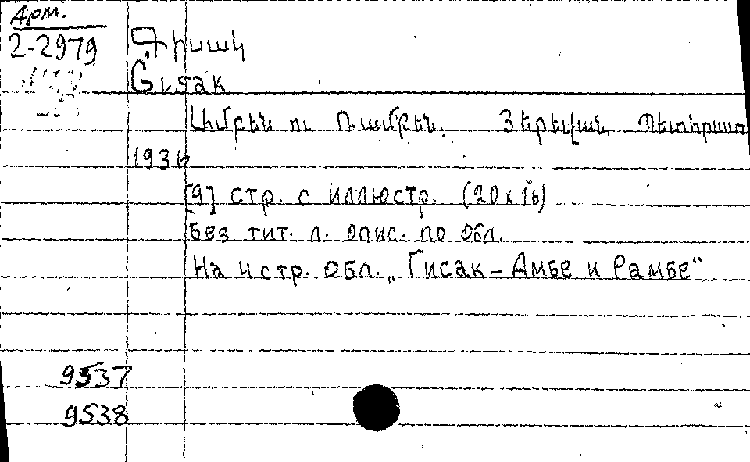 Арм.
2-2979
Գիսակ
Gisak
Ամբեն ու Ռամբեն. Յերեվան Պետհրատ
1936
[9] стр. с иллюстр. (20x16)
Без тит. л. опис. по обл.
На 4 стр. обл. „Гисак – Амбе и Рамбе"
9537
9538